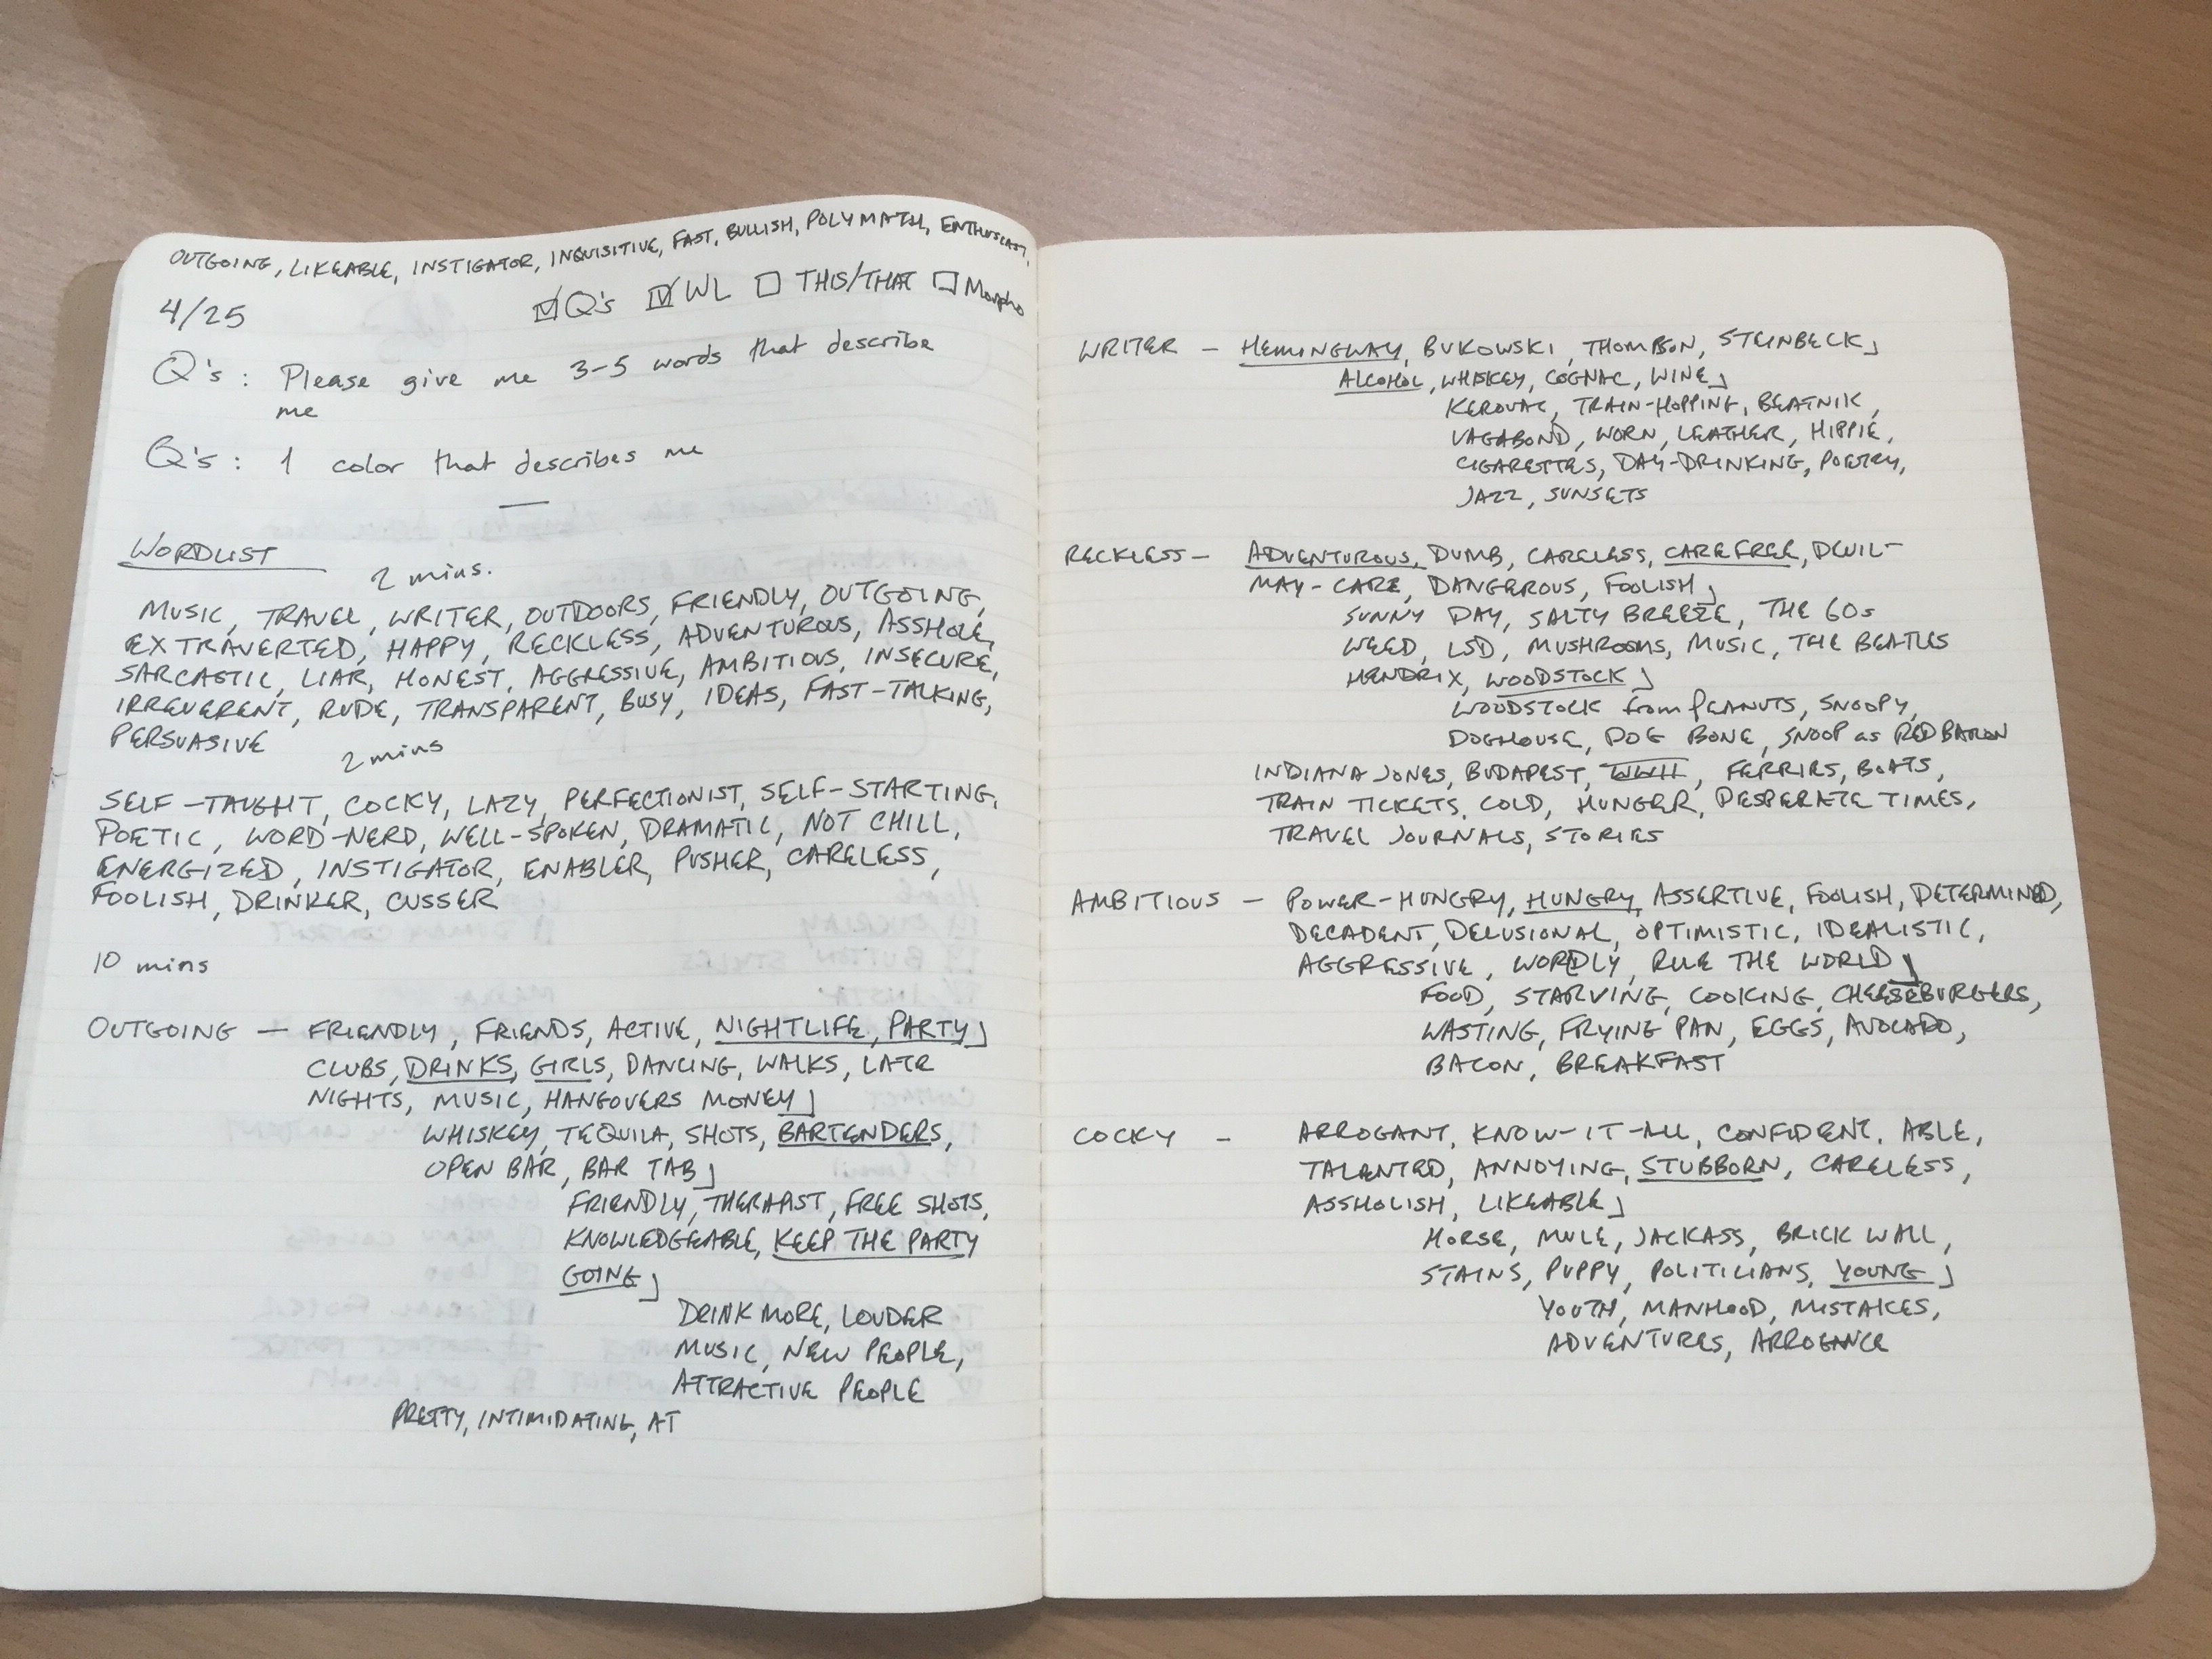 OUTGOING, LIKEABLE, INSTIGATOR, INQUISITIVE, FAST, BULLISH, POLYMATH, ENTHUSIAST,
4/25 ☑ Q's ☑ WL ☐ THIS/THAT ☐ Morpho
Q's: Please give me 3-5 words that describe
me
Q's: 1 color that describes me
—
WORDLIST
2 mins.
MUSIC, TRAVEL, WRITER, OUTDOORS, FRIENDLY, OUTGOING,
EXTRAVERTED, HAPPY, RECKLESS, ADVENTUROUS, ASSHOLE,
SARCASTIC, LIAR, HONEST, AGGRESSIVE, AMBITIOUS, INSECURE,
IRREVERENT, RUDE, TRANSPARENT, BUSY, IDEAS, FAST-TALKING,
PERSUASIVE
2 mins
SELF-TAUGHT, COCKY, LAZY, PERFECTIONIST, SELF-STARTING,
POETIC, WORD-NERD, WELL-SPOKEN, DRAMATIC, NOT CHILL,
ENERGIZED, INSTIGATOR, ENABLER, PUSHER, CARELESS,
FOOLISH, DRINKER, CUSSER
10 mins
OUTGOING — FRIENDLY, FRIENDS, ACTIVE, NIGHTLIFE, PARTY
CLUBS, DRINKS, GIRLS, DANCING, WALKS, LATE
NIGHTS, MUSIC, HANGOVERS MONEY
WHISKEY, TEQUILA, SHOTS, BARTENDERS,
OPEN BAR, BAR TAB
FRIENDLY, THERAPIST, FREE SHOTS,
KNOWLEDGEABLE, KEEP THE PARTY
GOING
DRINK MORE, LOUDER
MUSIC, NEW PEOPLE,
ATTRACTIVE PEOPLE
PRETTY, INTIMIDATING, AT
WRITER — HEMINGWAY, BUKOWSKI, THOMPSON, STEINBECK
ALCOHOL, WHISKEY, COGNAC, WINE
KEROUAC, TRAIN-HOPPING, BEATNIK,
VAGABOND, WORN, LEATHER, HIPPIE,
CIGARETTES, DAY-DRINKING, POETRY,
JAZZ, SUNSETS
RECKLESS — ADVENTUROUS, DUMB, CARELESS, CAREFREE, DEVIL-
MAY-CARE, DANGEROUS, FOOLISH
SUNNY DAY, SALTY BREEZE, THE 60s
WEED, LSD, MUSHROOMS, MUSIC, THE BEATLES
HENDRIX, WOODSTOCK
WOODSTOCK from PEANUTS, SNOOPY,
DOGHOUSE, DOG BONE, SNOOP as RED BARON
INDIANA JONES, BUDAPEST, WWII, FERRIES, BOATS,
TRAIN TICKETS, COLD, HUNGER, DESPERATE TIMES,
TRAVEL JOURNALS, STORIES
AMBITIOUS — POWER-HUNGRY, HUNGRY, ASSERTIVE, FOOLISH, DETERMINED,
DECADENT, DELUSIONAL, OPTIMISTIC, IDEALISTIC,
AGGRESSIVE, WORDLY, RULE THE WORLD
FOOD, STARVING, COOKING, CHEESEBURGERS,
WASTING, FRYING PAN, EGGS, AVOCADO,
BACON, BREAKFAST
COCKY — ARROGANT, KNOW-IT-ALL, CONFIDENT, ABLE,
TALENTED, ANNOYING, STUBBORN, CARELESS,
ASSHOLISH, LIKEABLE
HORSE, MULE, JACKASS, BRICK WALL,
STAINS, PUPPY, POLITICIANS, YOUNG
YOUTH, MANHOOD, MISTAKES,
ADVENTURES, ARROGANCE